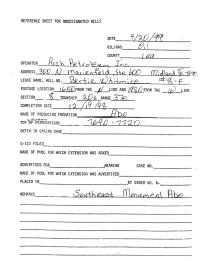 REFERENCE SHEET FOR UNDESIGNATED WELLS
DATE 9/20/99
OIL/GAS Oil
COUNTY Lea
OPERATOR Arch Petroleum Inc
ADDRESS 300 N Marienfeld, Ste 600 Midland Tx
LEASE NAME, WELL NO. Bertie Whitmire #8-F
FOOTAGE LOCATION 1650 FROM THE N LINE AND 1980 FROM THE W LINE
SECTION 8 TOWNSHIP 20s RANGE 37e
COMPLETION DATE 12/19/98
NAME OF PRODUCING FORMATION Abo
TOP OF PERFORATIONS 7690 - 7720
DEPTH TO CASING SHOE
C-123 FILED
NAME OF POOL FOR WHICH EXTENSION WAS ASKED
ADVERTISED FOR HEARING CASE NO.
NAME OF POOL FOR WHICH EXTENSION WAS ADVERTISED
PLACED IN BY ORDER NO. R-
REMARKS Southeast Monument Abo